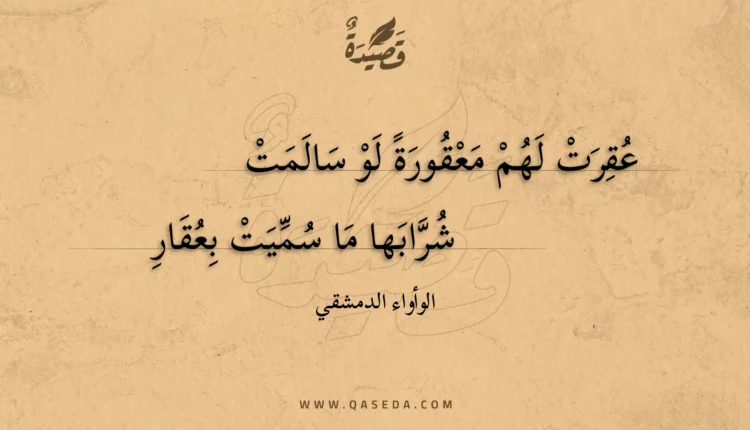 قَصِيْدَةٌ
عُقِرَتْ لَهُمْ مَعْقُورَةً لَوْ سَالَمَتْ
شُرَّابَها مَا سُمِّيَتْ بِعُقَارِ
الوأواء الدمشقي
WWW.QASEDA.COM